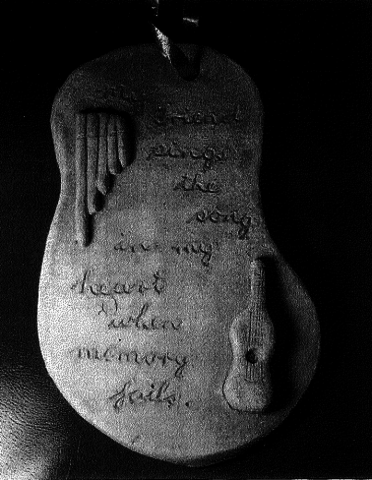 My
friend
sings
the
song
in my
heart
when
memory
fails.